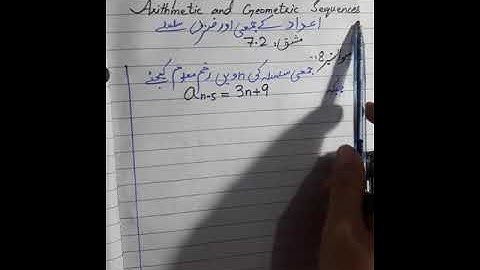 Arithmetic and Geometric Sequences
اعداد کے جمعی اور ضربی سلسلے
مشق: 7.2
سوال نمبر 8:-
جمعی سلسلہ کی nویں رقم معلوم کیجئے
جبکہ
aₙ₋₅ = 3n+9